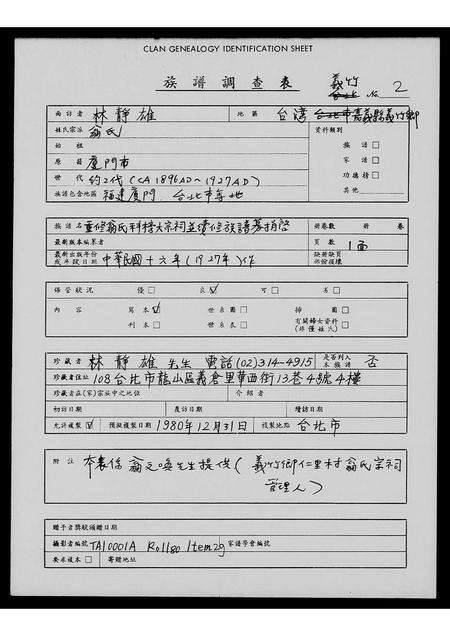 CLAN GENEALOGY IDENTIFICATION SHEET
族譜調查表
義竹
台北 No. 2
面訪者 林靜雄 地區 台灣 台北市嘉義縣義竹鄉
姓氏宗派 翁氏 資料類別
始祖 族譜 □
原籍 廈門市 家譜 □
世代 約2代 (CA 1896AD~1927AD) 功德榜 □
族譜包含地區 福建廈門、台北市等地 其他
族譜名 重修翁氏科榜大宗祠並續修族譜募捐啓 冊卷數 冊 卷
最新版本編纂者 頁數 1面
最新出版年份或年限日期 中華民國十六年(1927年)作 缺冊缺頁部份損壞
保管狀況 優 □ 良 ☑ 可 □ 劣 □
內容 寫本 ☑ 世系圖 □ 掃圖 □
刊本 □ 世系表 □ 有關婦女資料(非僅姓氏) □
珍藏者 林靜雄先生 電話(02)314-4915 是否列入本族譜 否
珍藏者住址 108台北市龍山區義倉里華西街13巷4號4樓
珍藏者在(家)宗祠中之地位 介紹者
初訪日期 度訪日期 續訪日期
允許複製 ☑ 預擬複製日期 1980年12月31日 複製地點 台北市
附註 本表係翁文喚先生提供(義竹鄉仁里村翁氏宗祠
管理人)
贈予者獎狀頒贈日期
攝影者編號 TA10001A Roll80 Item29 家譜學會編號
要求複本 □ 寄贈地址